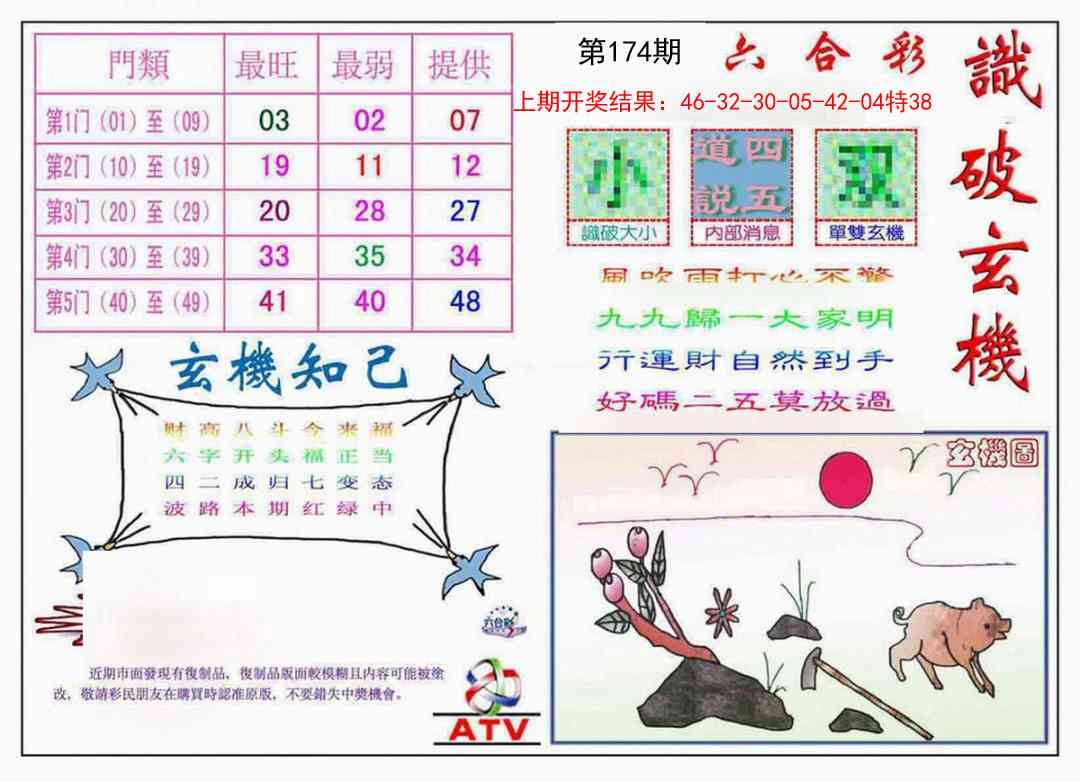 門類 最旺 最弱 提供
第1门（01）至（09） 03 02 07
第2门（10）至（19） 19 11 12
第3门（20）至（29） 20 28 27
第4门（30）至（39） 33 35 34
第5门（40）至（49） 41 40 48
第174期 六合彩
上期开奖结果：46-32-30-05-42-04特38
識破玄機
小
識破大小
道四
説五
内部消息
双
單雙玄機
風吹雨打心不驚
九九歸一大家明
行運財自然到手
好碼二五莫放過
玄機知己
财高八斗今来福
六字开头福正当
四二成归七变态
波路本期红绿中
六合彩
近期市面發現有復制品、復制品版面較模糊且内容可能被塗
改，敬請彩民朋友在購買時認准原版，不要錯失中獎機會。
ATV
玄機圖